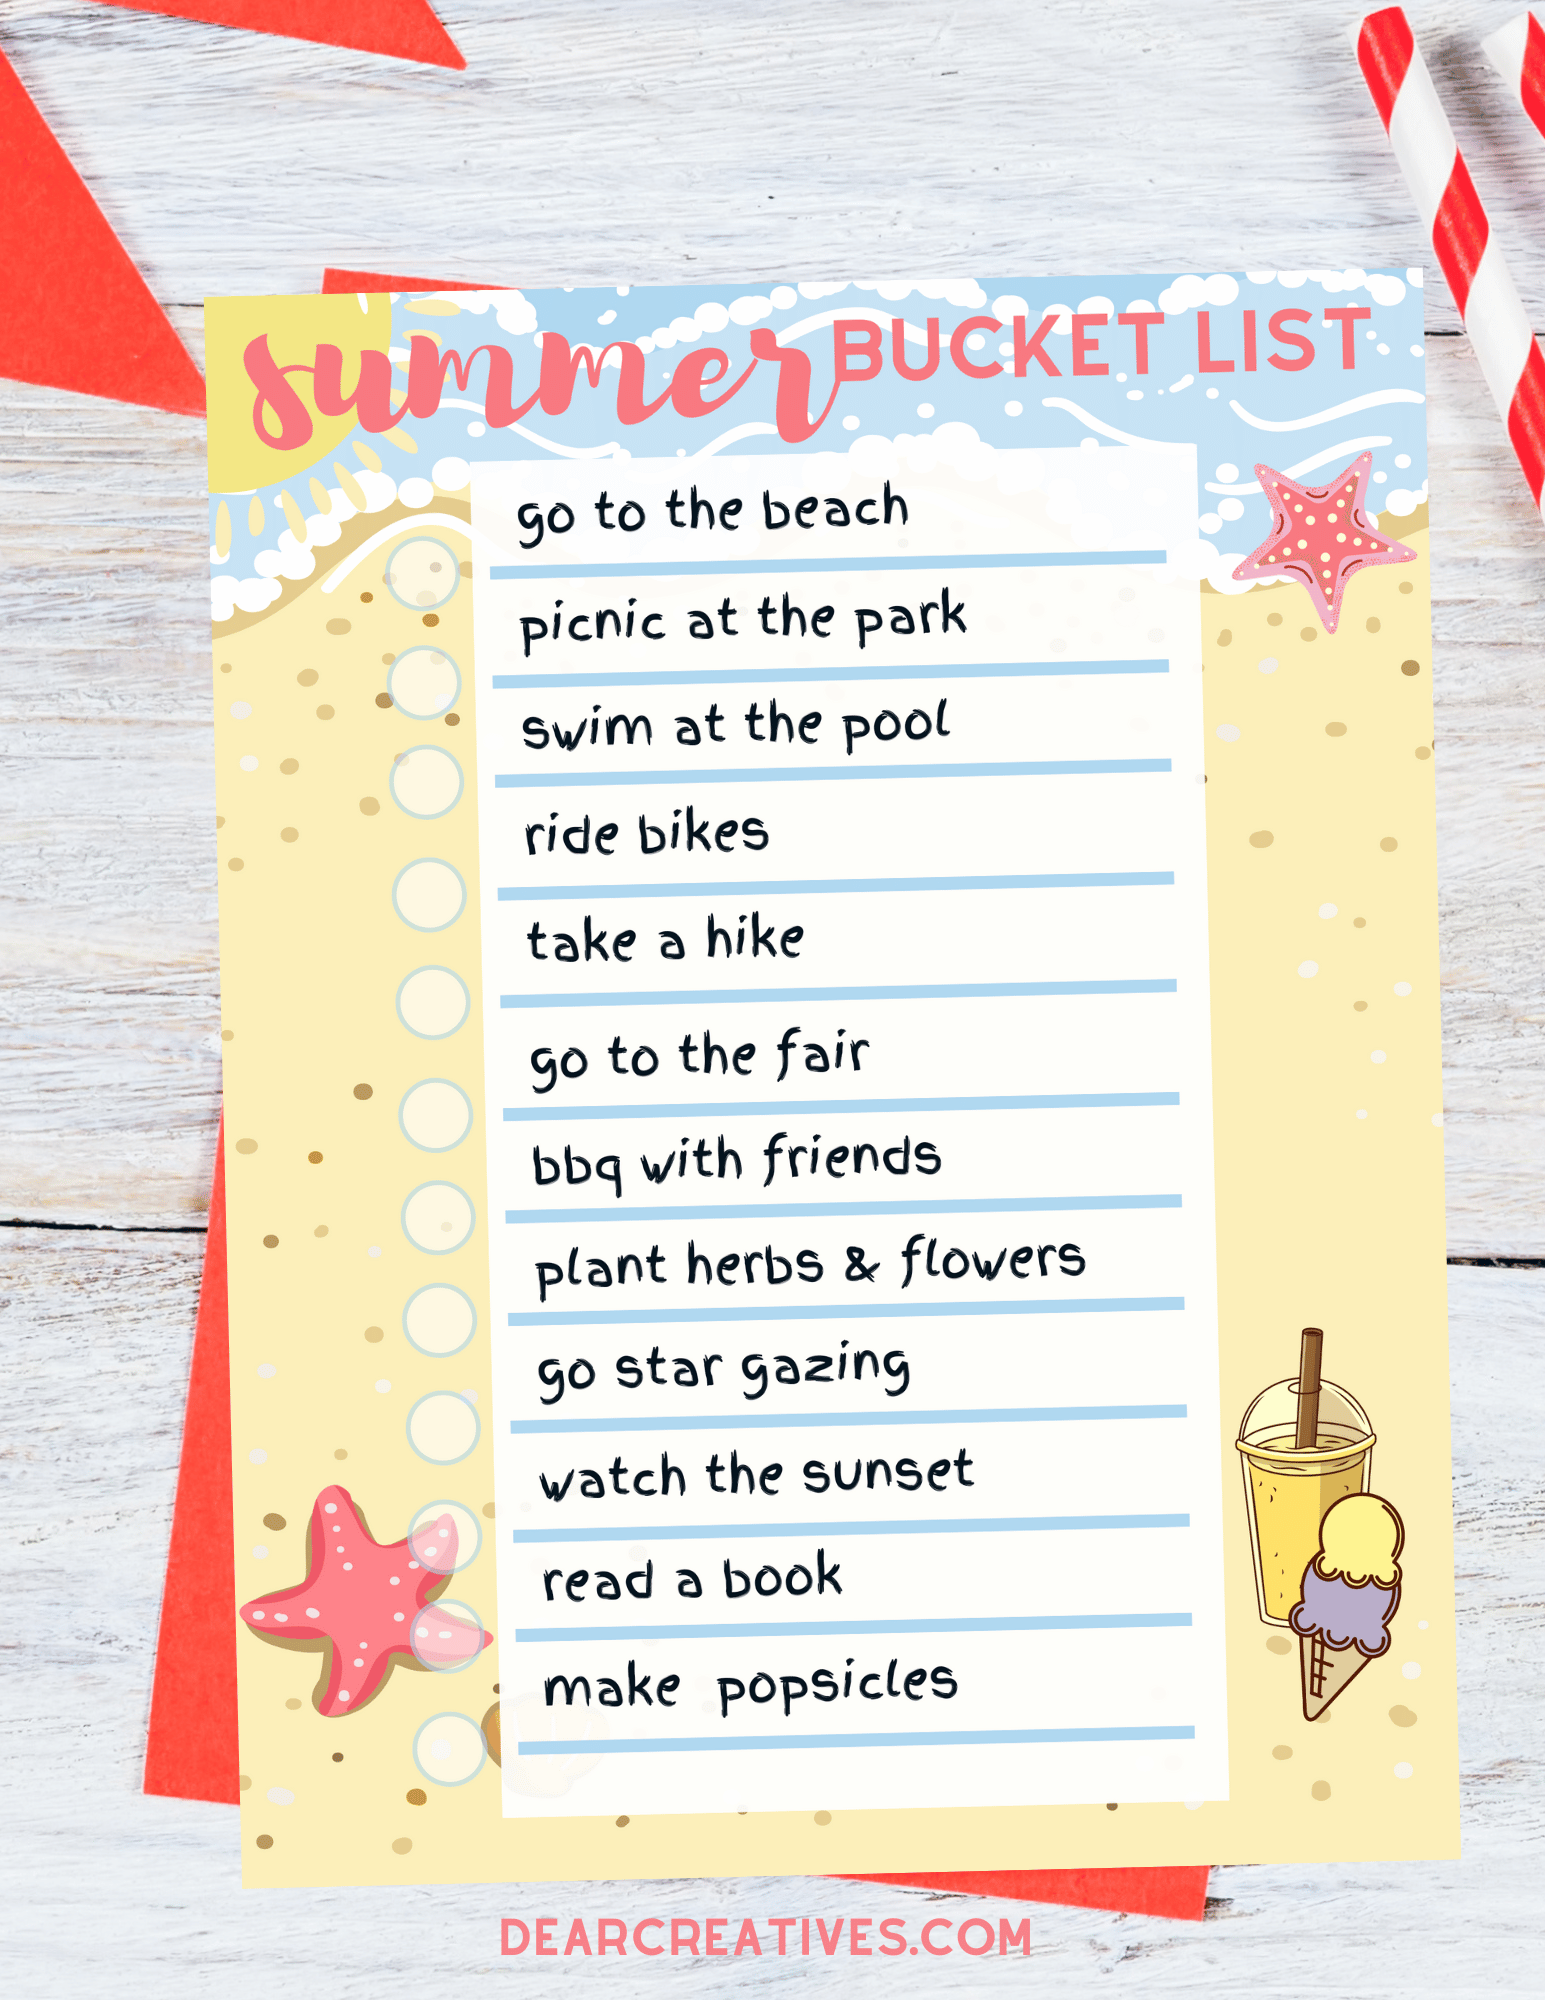 summer BUCKET LIST
go to the beach
picnic at the park
swim at the pool
ride bikes
take a hike
go to the fair
bbq with friends
plant herbs & flowers
go star gazing
watch the sunset
read a book
make popsicles
DEARCREATIVES.COM